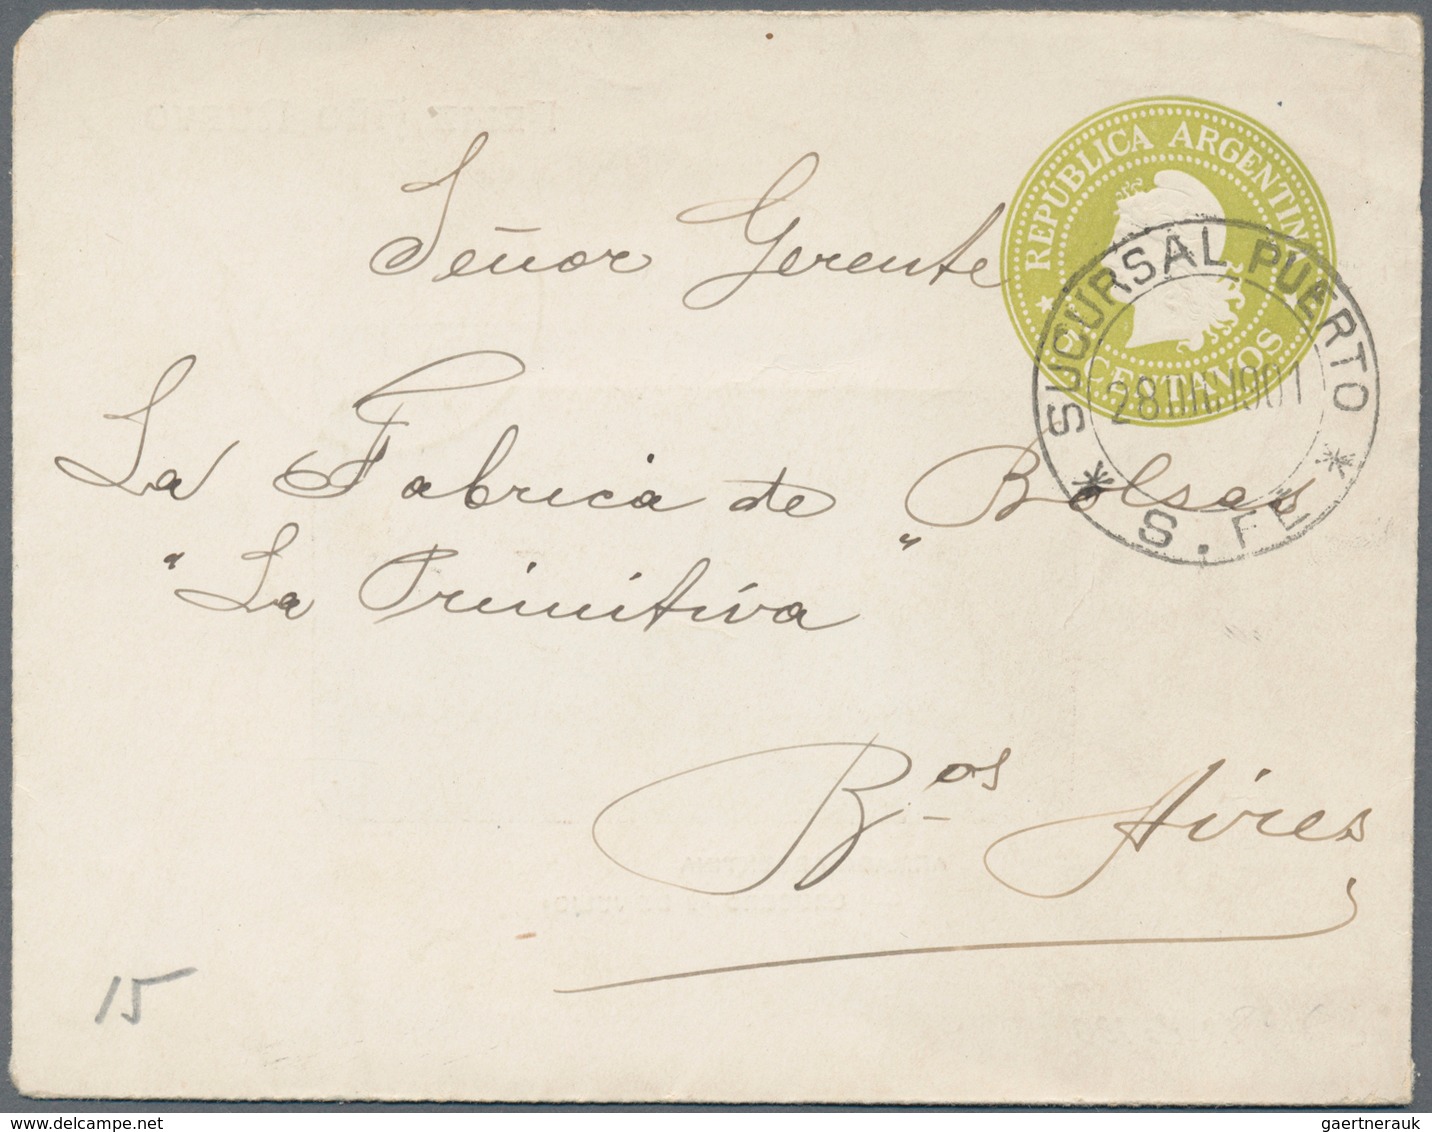 REPÚBLICA ARGENTINA
CENTAVOS
SUCURSAL PUERTO
28 DIC 1901
* S. FÉ *
Señor Gerente
La Fabrica de Bolsas
"La Primitiva"
Bos Aires
15
gaertnerauk